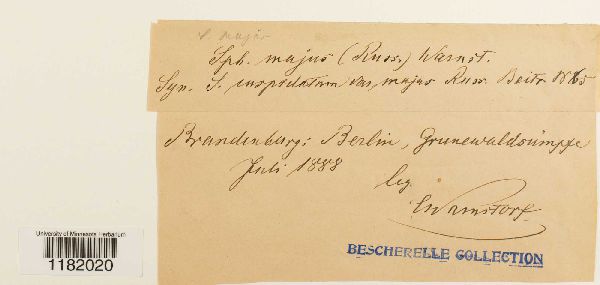 S. majus
Sph. majus (Russ.) Warnst.
Syn. S. cuspidatum var. majus Russ. Beitr. 1865
Brandenburg: Berlin, Grunewaldsümpfe
Juli 1888
leg.
CWarnstorf.
BESCHERELLE COLLECTION
University of Minnesota Herbarium
1182020